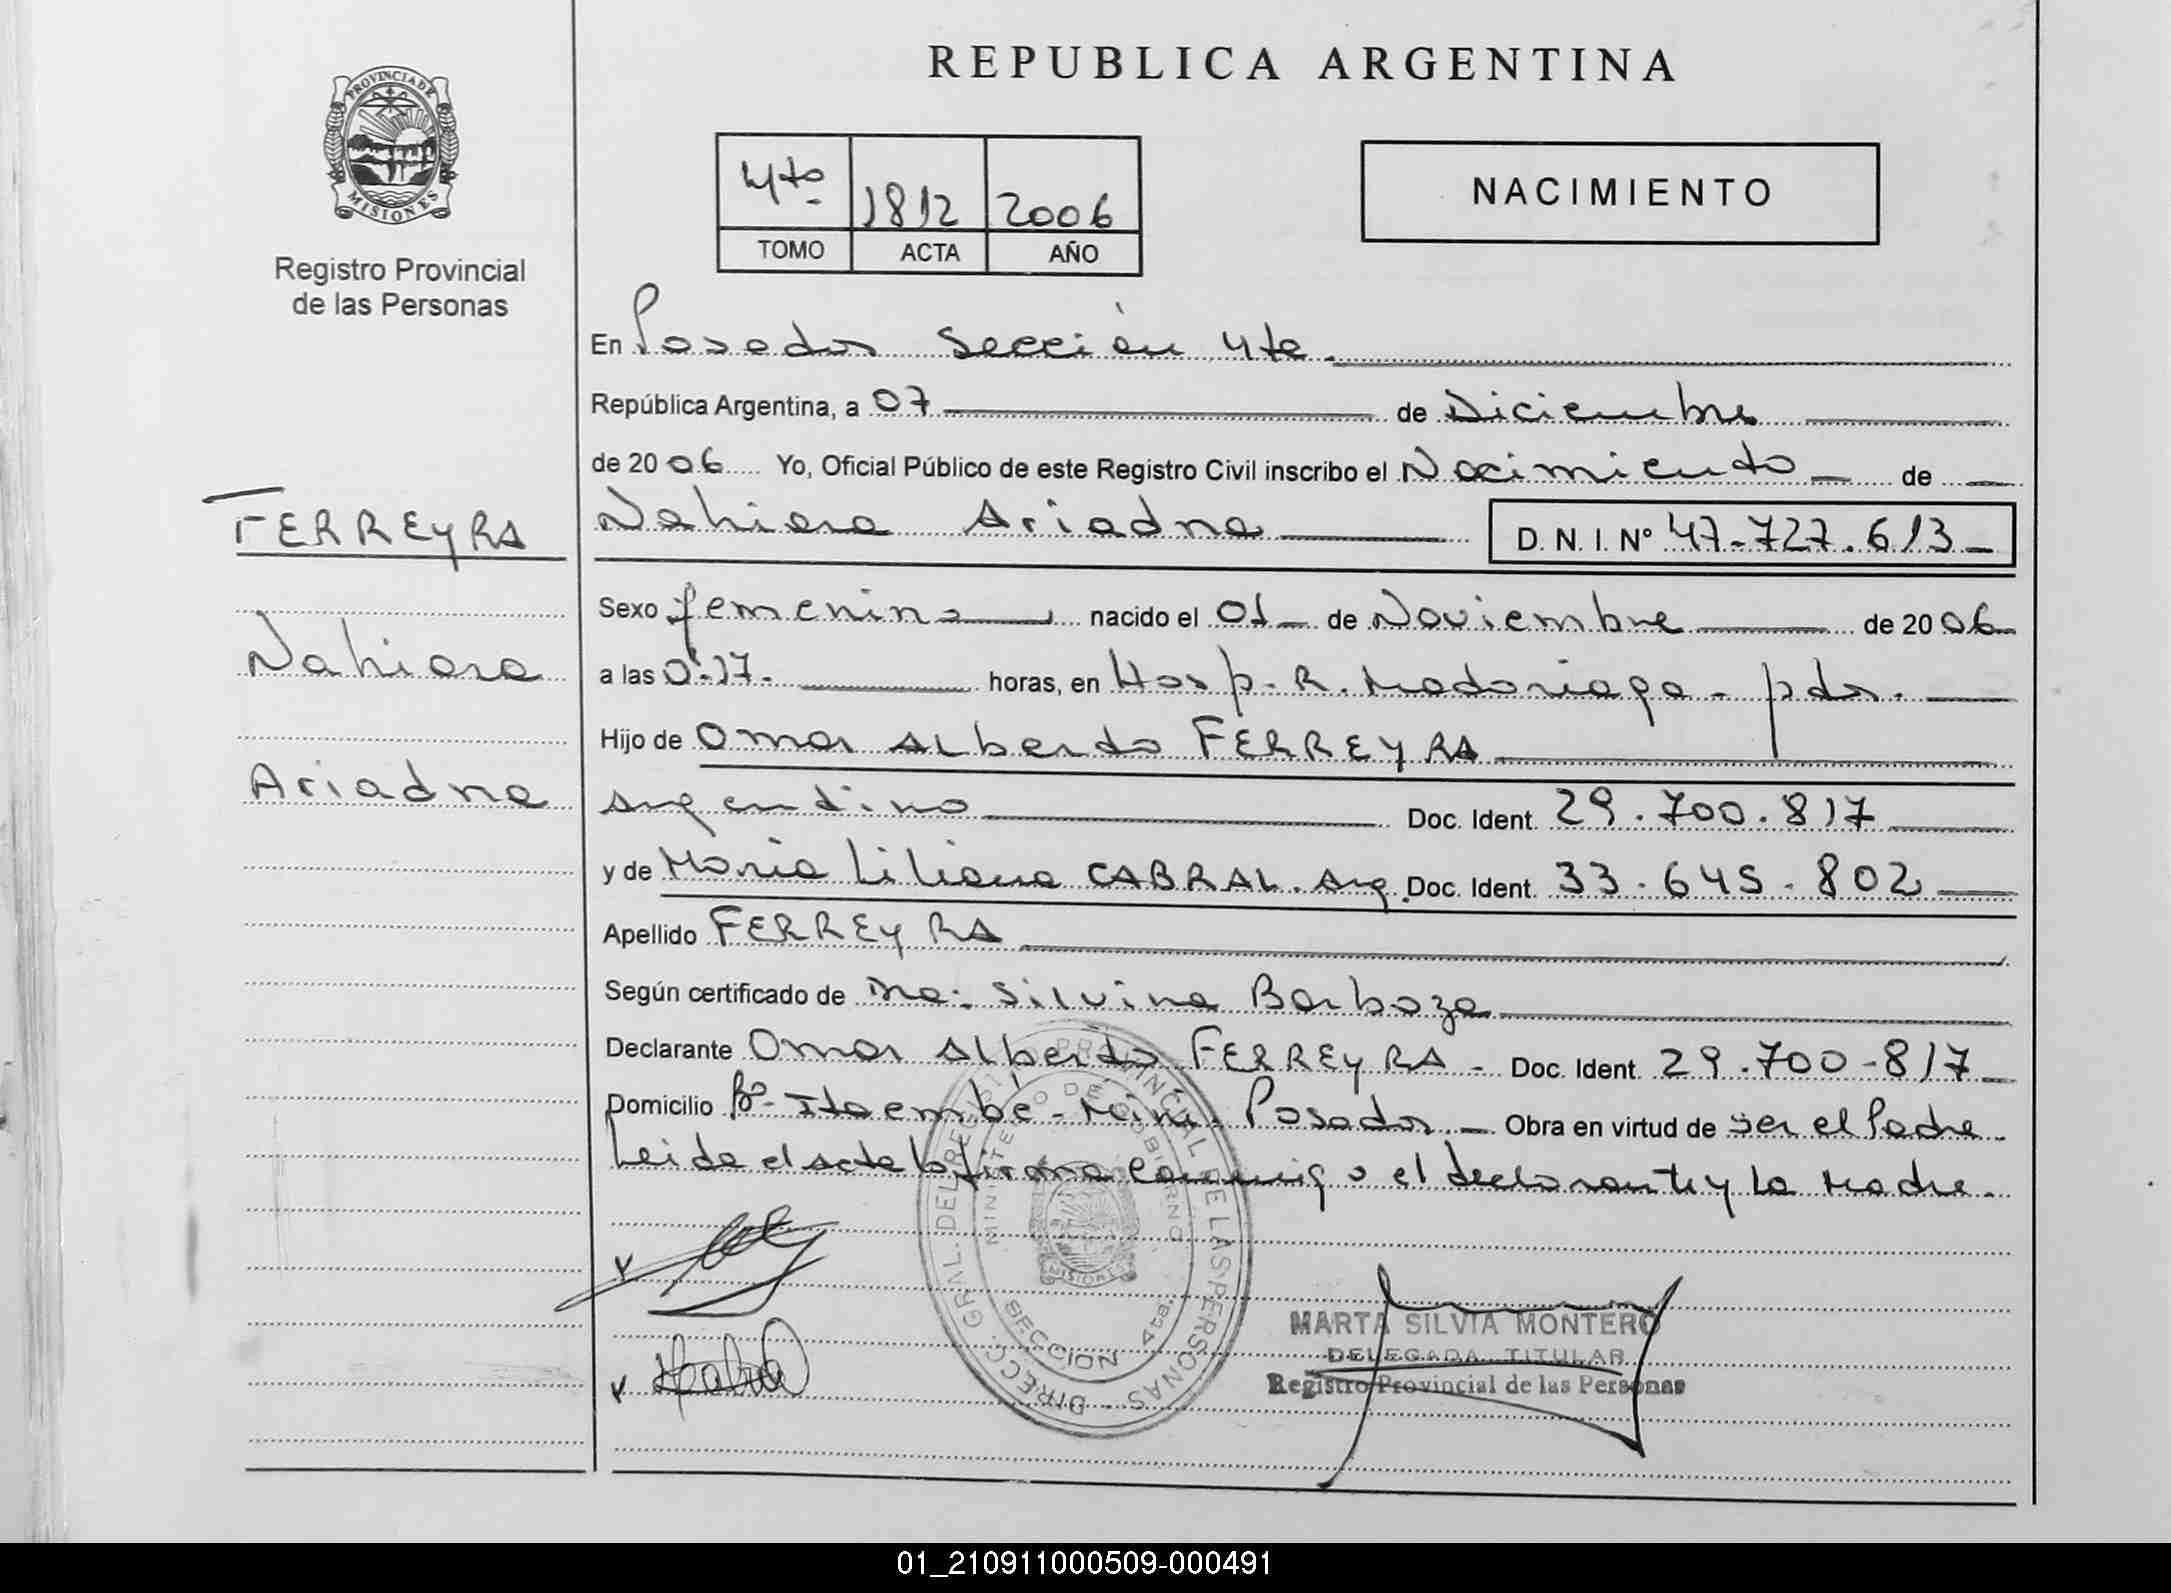 REPUBLICA ARGENTINA
PROVINCIA DE
MISIONES
Registro Provincial
de las Personas
4to 1812 2006
TOMO ACTA AÑO
NACIMIENTO
En Posadas Sección 4ta.
República Argentina, a 07 de Diciembre
de 2006 Yo, Oficial Público de este Registro Civil inscribo el Nacimiento de
FERREYRA
Nahiara
Ariadna
Nahiara Ariadna D. N. I. Nº 47.727.613
Sexo femenino nacido el 01 de Noviembre de 2006
a las 0:17. horas, en Hosp. R. Madariaga - pdas.
Hijo de Omar Alberto FERREYRA
argentino Doc. Ident. 29.700.817
y de Maria Liliana CABRAL. Arg. Doc. Ident. 33.645.802
Apellido FERREYRA
Según certificado de Silvina Barboza
Declarante Omar Alberto FERREYRA - Doc. Ident. 29.700-817
Domicilio Bº Itaembe-Mini. Posadas. Obra en virtud de ser el Padre
Leida el acta la firma conmigo el declarante y la Madre.
DIRECC. GRAL. DEL REGISTRO PROVINCIAL DE LAS PERSONAS
MINISTERIO DE GOBIERNO
MISIONES
SECCION 4ta.
MARTA SILVIA MONTERO
DELEGADA TITULAR
Registro Provincial de las Personas
01_210911000509-000491